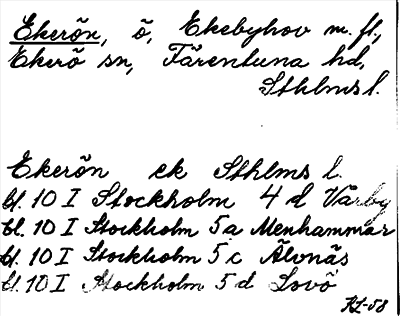 Ekerön, ö, Ekebyhov m.fl.,
Ekerö sn, Färentuna hd,
Sthlms l.
Ekerön ek Sthlms l.
bl. 10 I Stockholm 4 d Vårby
bl. 10 I Stockholm 5 a Menhammar
bl. 10 I Stockholm 5 c Älvnäs
bl. 10 I Stockholm 5 d Lovö
KL-58